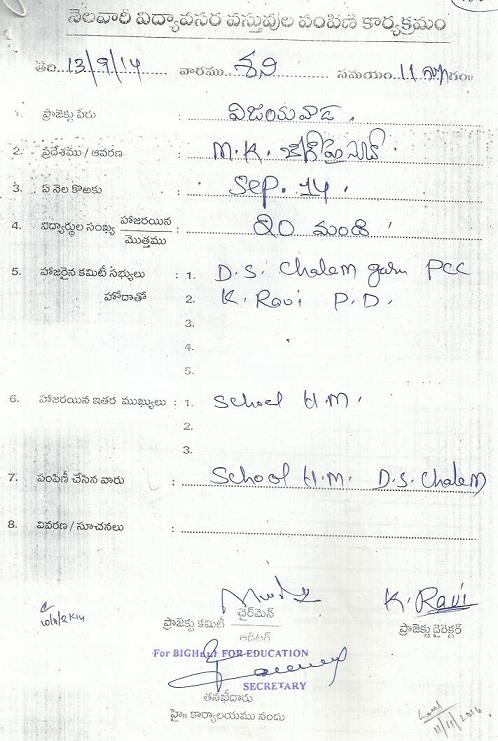 నెలవారీ విద్యావసర వస్తువుల పంపిణీ కార్యక్రమం
తేది. 13/9/14 వారము శని సమయం 11
1. ప్రాజెక్టు పేరు : విజయవాడ.
2. ప్రదేశము / ఆవరణ : M.K.
3. ఏ నెల కొఱకు : Sep. 14.
4. విద్యార్థుల సంఖ్య హాజరయిన / మొత్తము : 20 మంది
5. హాజరైన కమిటీ సభ్యులు : 1. D.S. Chalam garu PCC
హోదాతో 2. K. Ravi P.D.
3.
4.
5.
6. హాజరయిన ఇతర ముఖ్యులు : 1. School H.M.
2.
3.
7. పంపిణీ చేసిన వారు : School H.M. D.S. Chalam
8. వివరణ / సూచనలు :
K. Ravi
ప్రాజెక్టు కమిటీ ఛైర్మెన్
ఆడిటర్
ప్రాజెక్టు డైరెక్టర్
For BIGHELP FOR EDUCATION
SECRETARY
తనఖీదారు
హై॥ కార్యాలయము నందు
11/11/2014